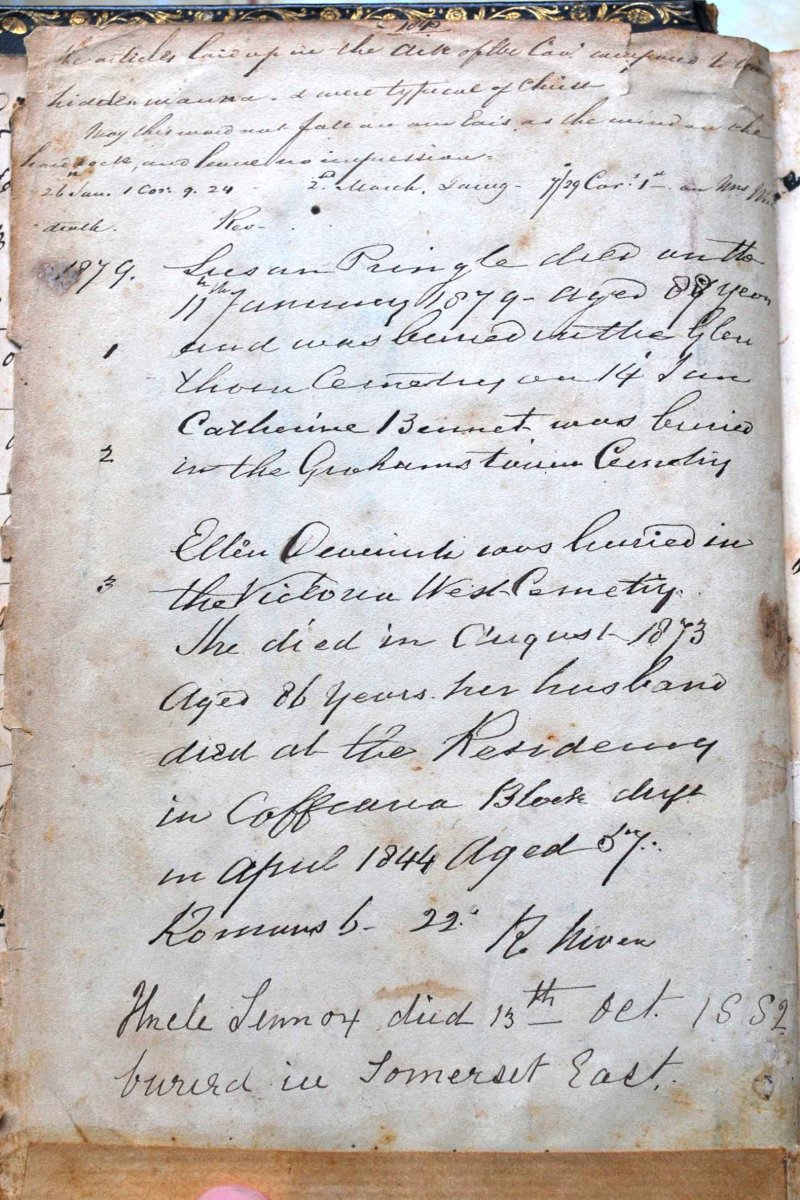 the articles laid up in the of the compared to
hidden manna - & were typical of Christ
May this word not fall on our Ears as the wind on the
hard rock, and leave no impression.
26th Jan. 1 Cor. 9. 24 - 2nd March. - 7/29 Cor. 1st. on Mrs
death. Rev-
1879. Susan Pringle died on the
11th January 1879 - aged 88 years
1 and was buried in the Glen
thorn Cemetry on 14 Jan
Catherine Bennet was buried
2 in the Grahamstown Cemetry
Ellen Devenish was buried in
3 the Victoria West Cemetry.
She died in August 1873
Aged 86 Years. her husband
died at the Residency
in Block drift
in April 1844 Aged 57.
Romans 6 - 22. R
Uncle Lennox died 13th Oct. 1882
burerd in Somerset East.